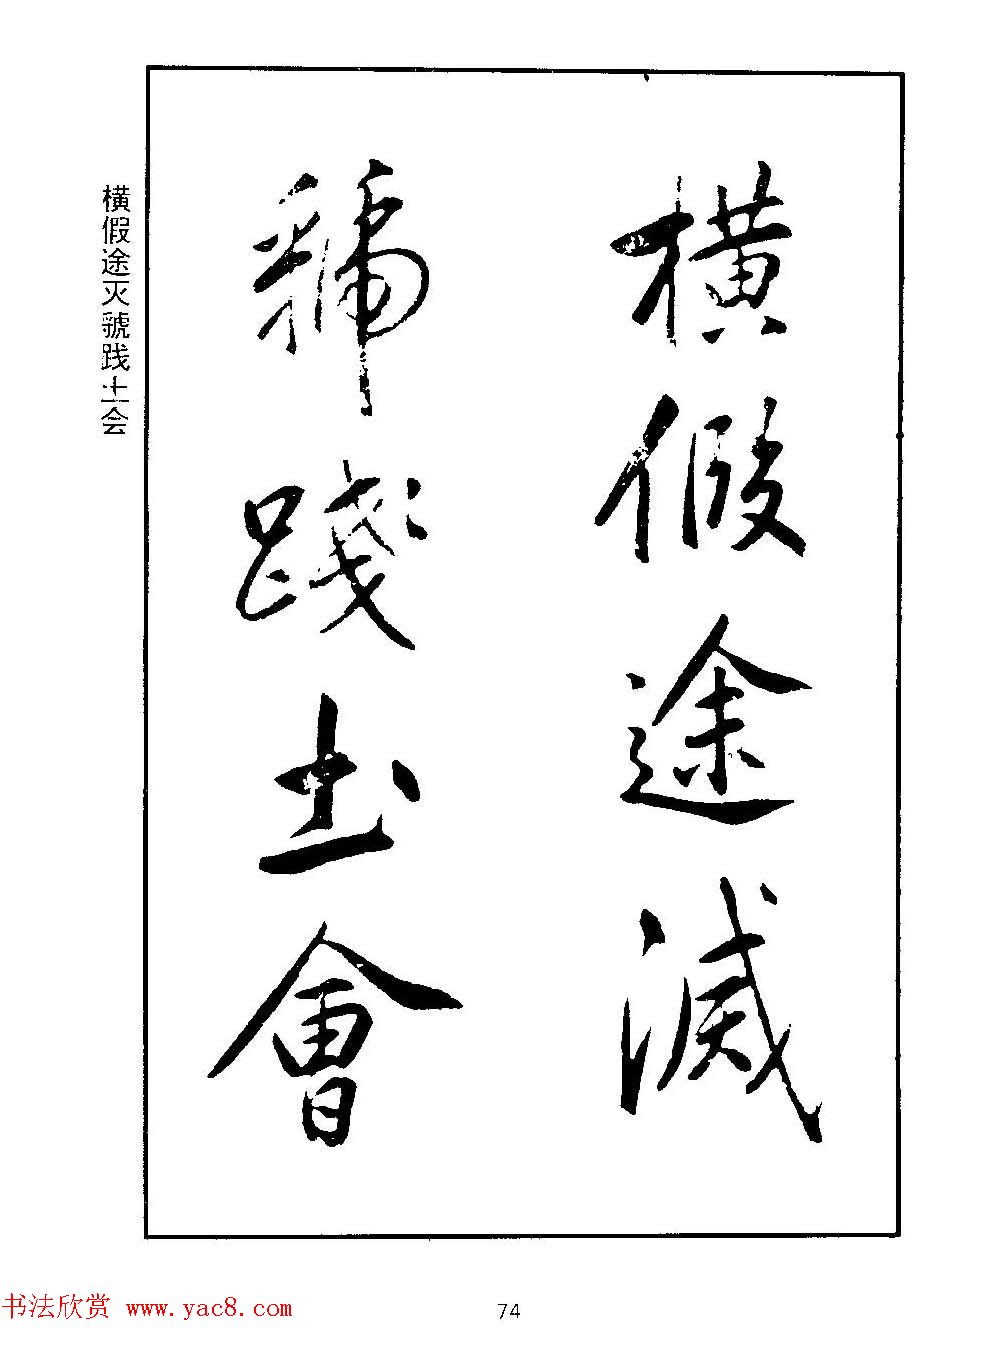 橫假途滅
虢踐土會
横假途灭虢践土会
书法欣赏 www.yac8.com
74